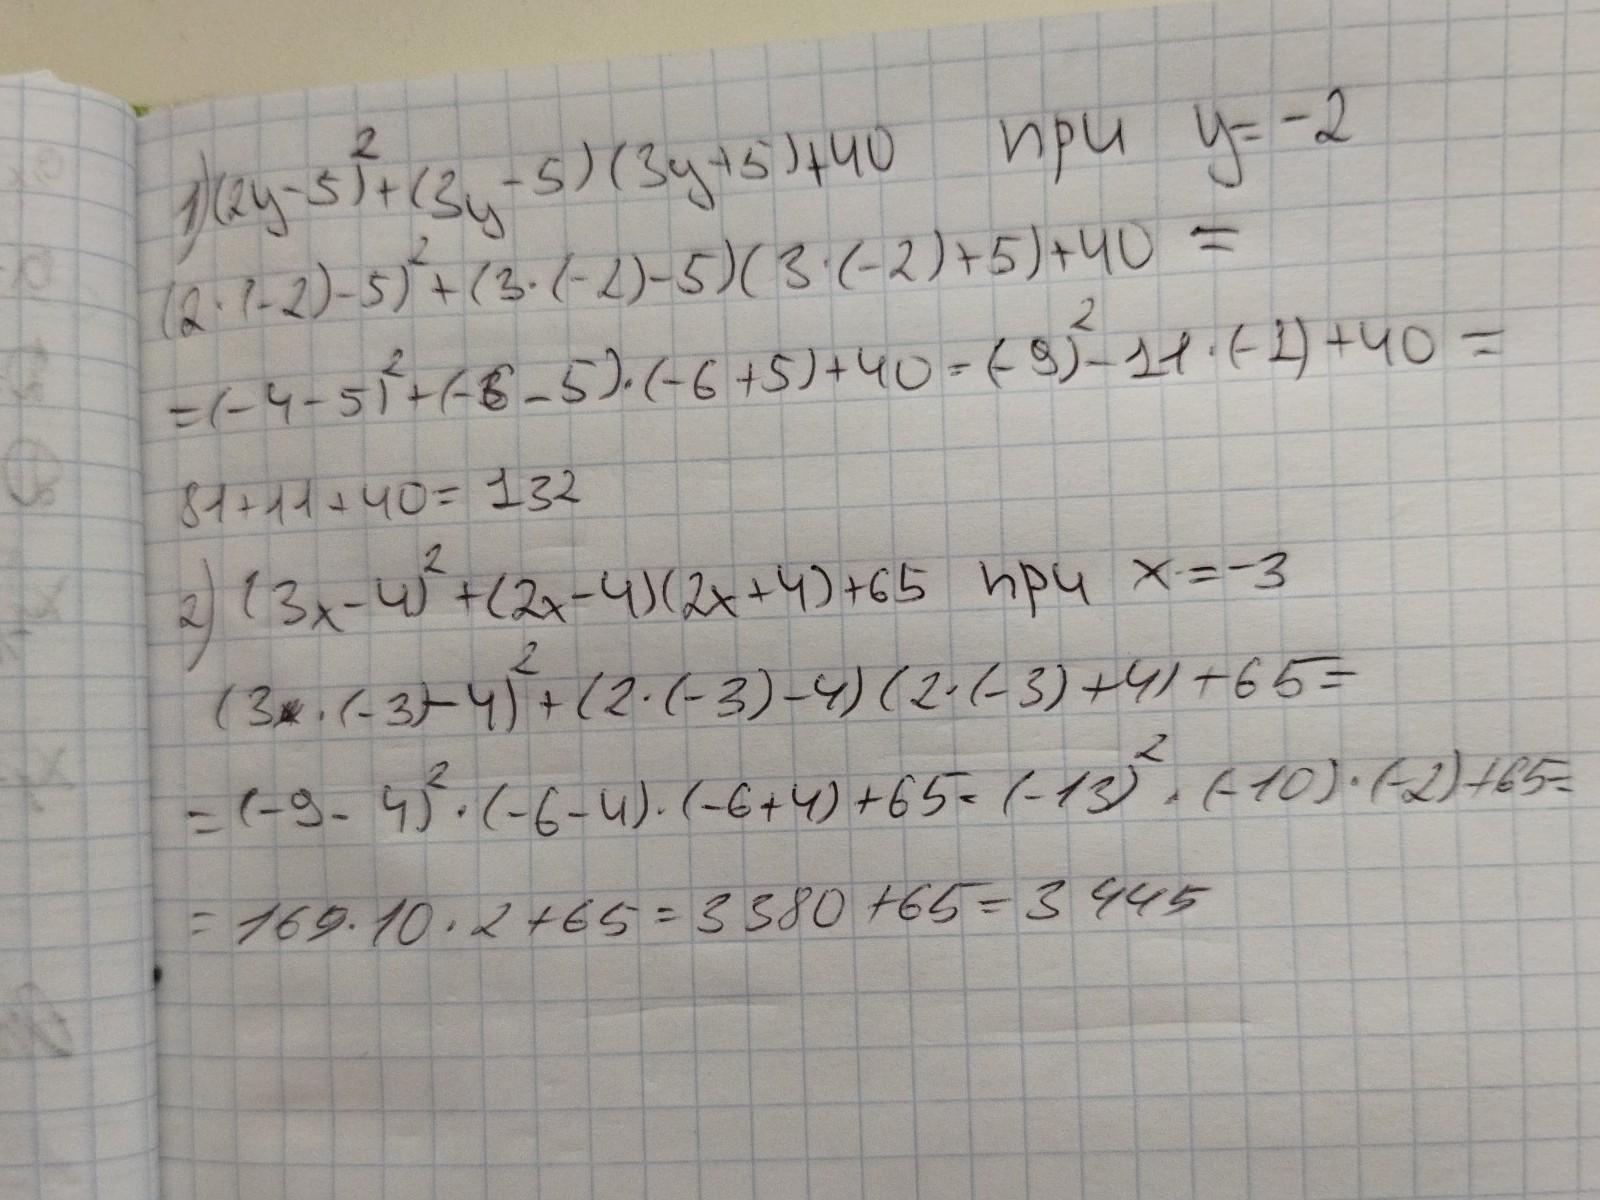 1) (2y-5)²+(3y-5)(3y+5)+40 при y=-2
(2·(-2)-5)²+(3·(-2)-5)(3·(-2)+5)+40 =
=(-4-5)²+(-6-5)·(-6+5)+40=(-9)²-11·(-1)+40=
81+11+40=132
2) (3x-4)²+(2x-4)(2x+4)+65 при x=-3
(3·(-3)-4)²+(2·(-3)-4)(2·(-3)+4)+65=
=(-9-4)²·(-6-4)·(-6+4)+65=(-13)²·(-10)·(-2)+65=
=169·10·2+65=3380+65=3445